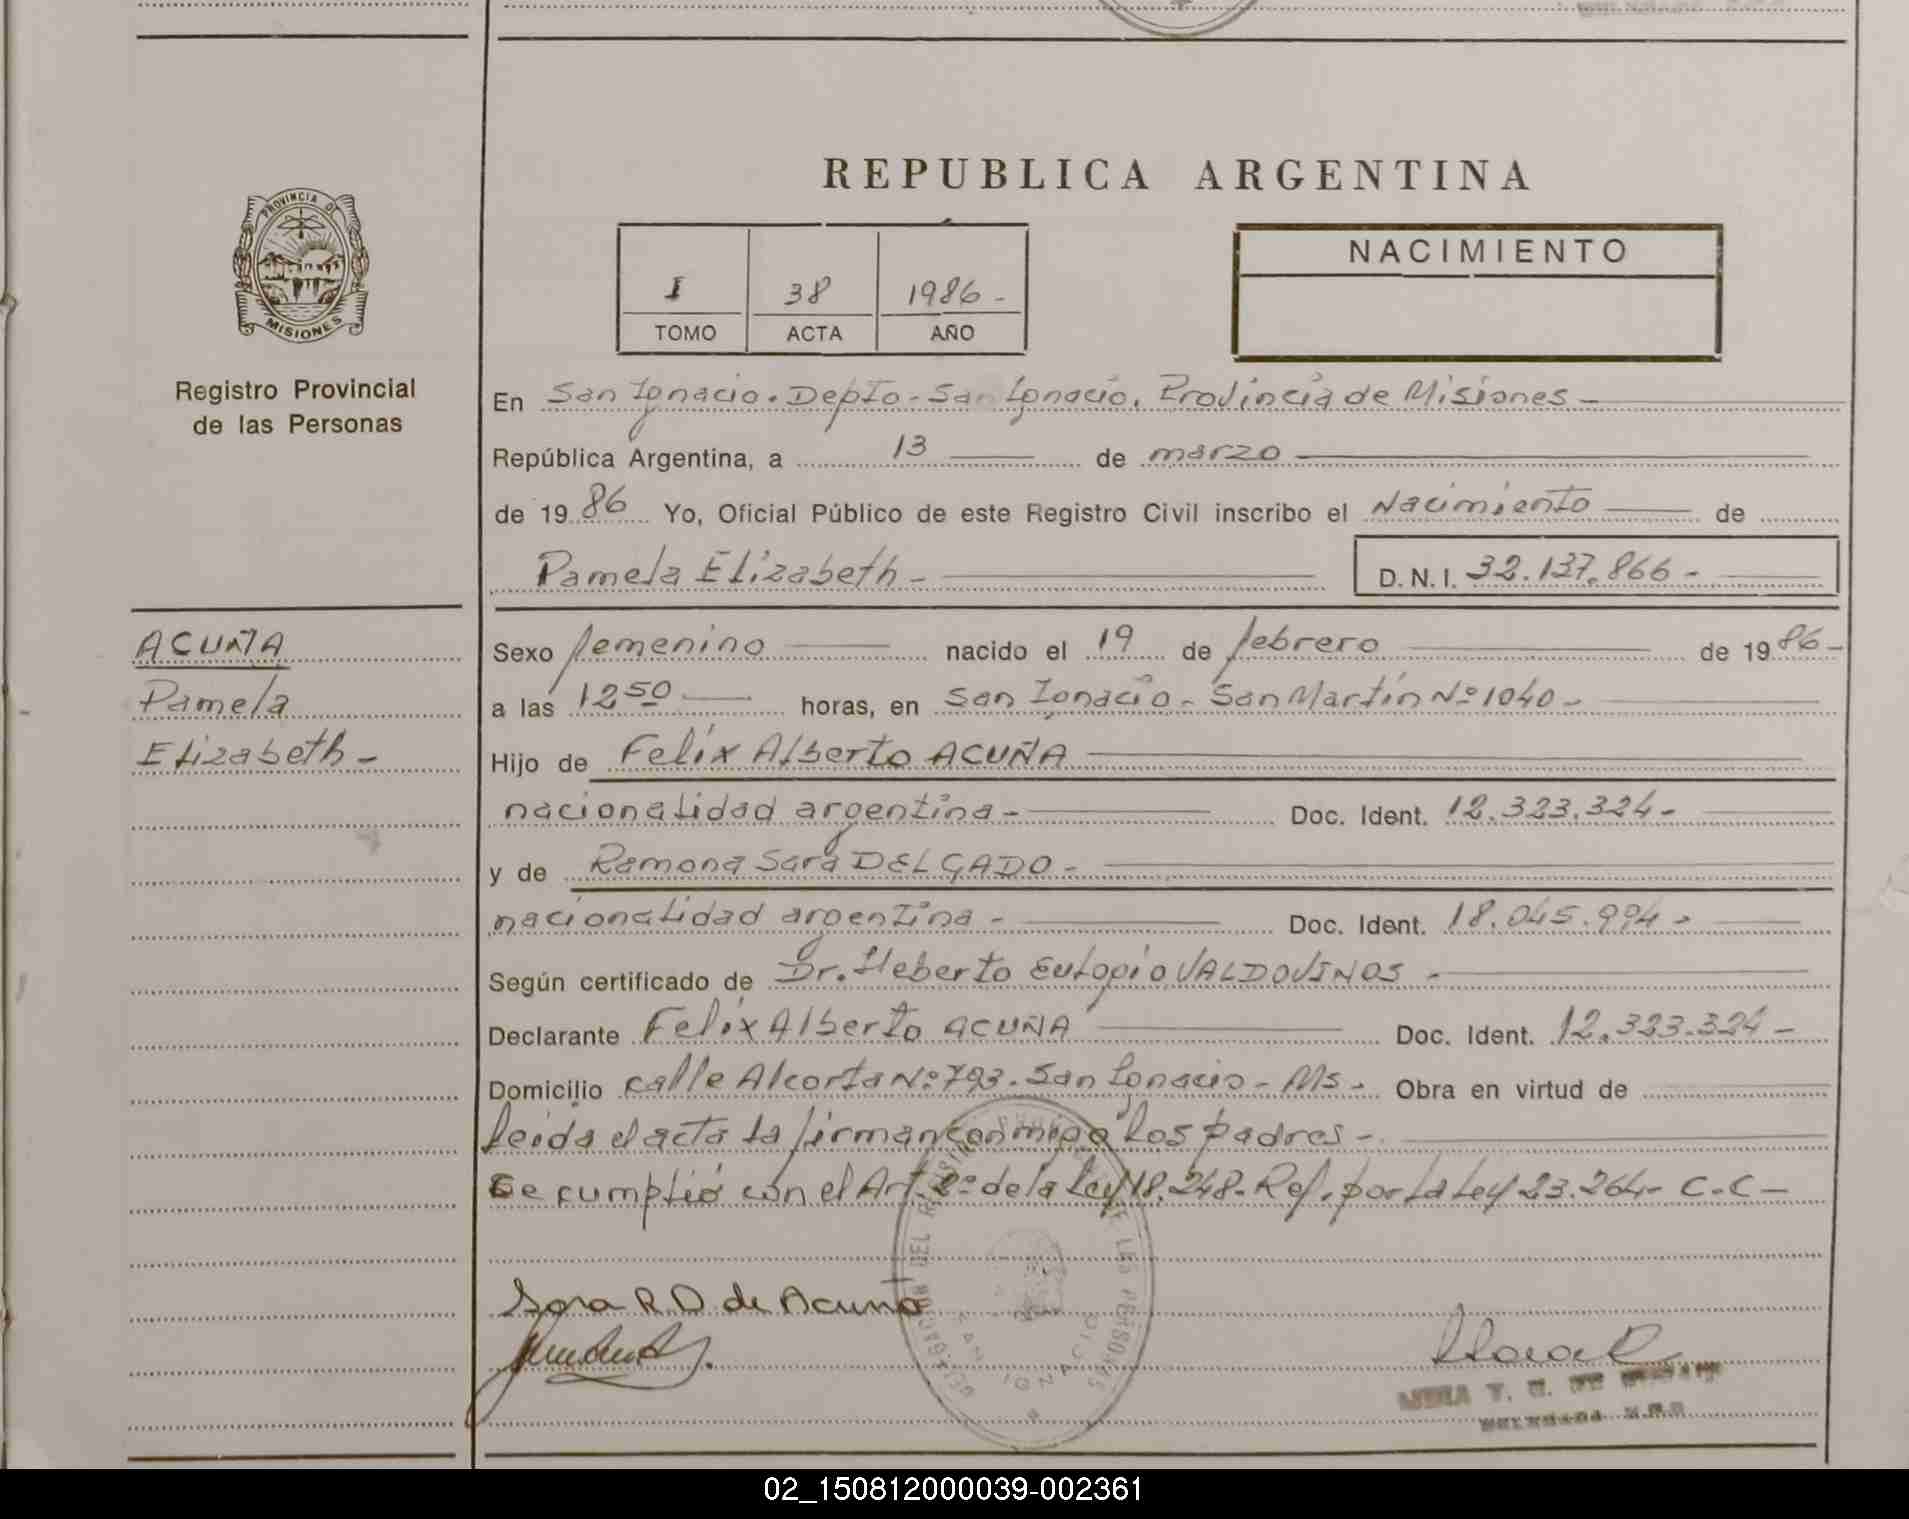 REPUBLICA ARGENTINA
PROVINCIA DE
MISIONES
Registro Provincial
de las Personas
I 38 1986-
TOMO ACTA AÑO
NACIMIENTO
En San Ignacio. Depto- San Ignacio. Provincia de Misiones-
República Argentina, a 13 de marzo
de 1986 Yo, Oficial Público de este Registro Civil inscribo el Nacimiento de
Pamela Elizabeth- D.N.I. 32.137.866-
ACUÑA
Pamela
Elizabeth-
Sexo femenino nacido el 19 de febrero de 1986-
a las 12 50 horas, en San Ignacio- San Martín Nº 1040-
Hijo de Felix Alberto ACUÑA
nacionalidad argentina- Doc. Ident. 12.323.324-
y de Ramona Sara DELGADO-
nacionalidad argentina- Doc. Ident. 18.045.994-
Según certificado de Dr. Heberto Eulogio VALDOVINOS-
Declarante Felix Alberto ACUÑA Doc. Ident. 12.323.324-
Domicilio calle Alcorta Nº 793. San Ignacio- Ms- Obra en virtud de
leida el acta la firman conmigo los padres-
Se cumplió con el Art. 2º de la Ley 18.248- Ref. por la Ley 23.264- C.C-
Sara R.D. de Acuña
SAN IGNACIO
02_150812000039-002361